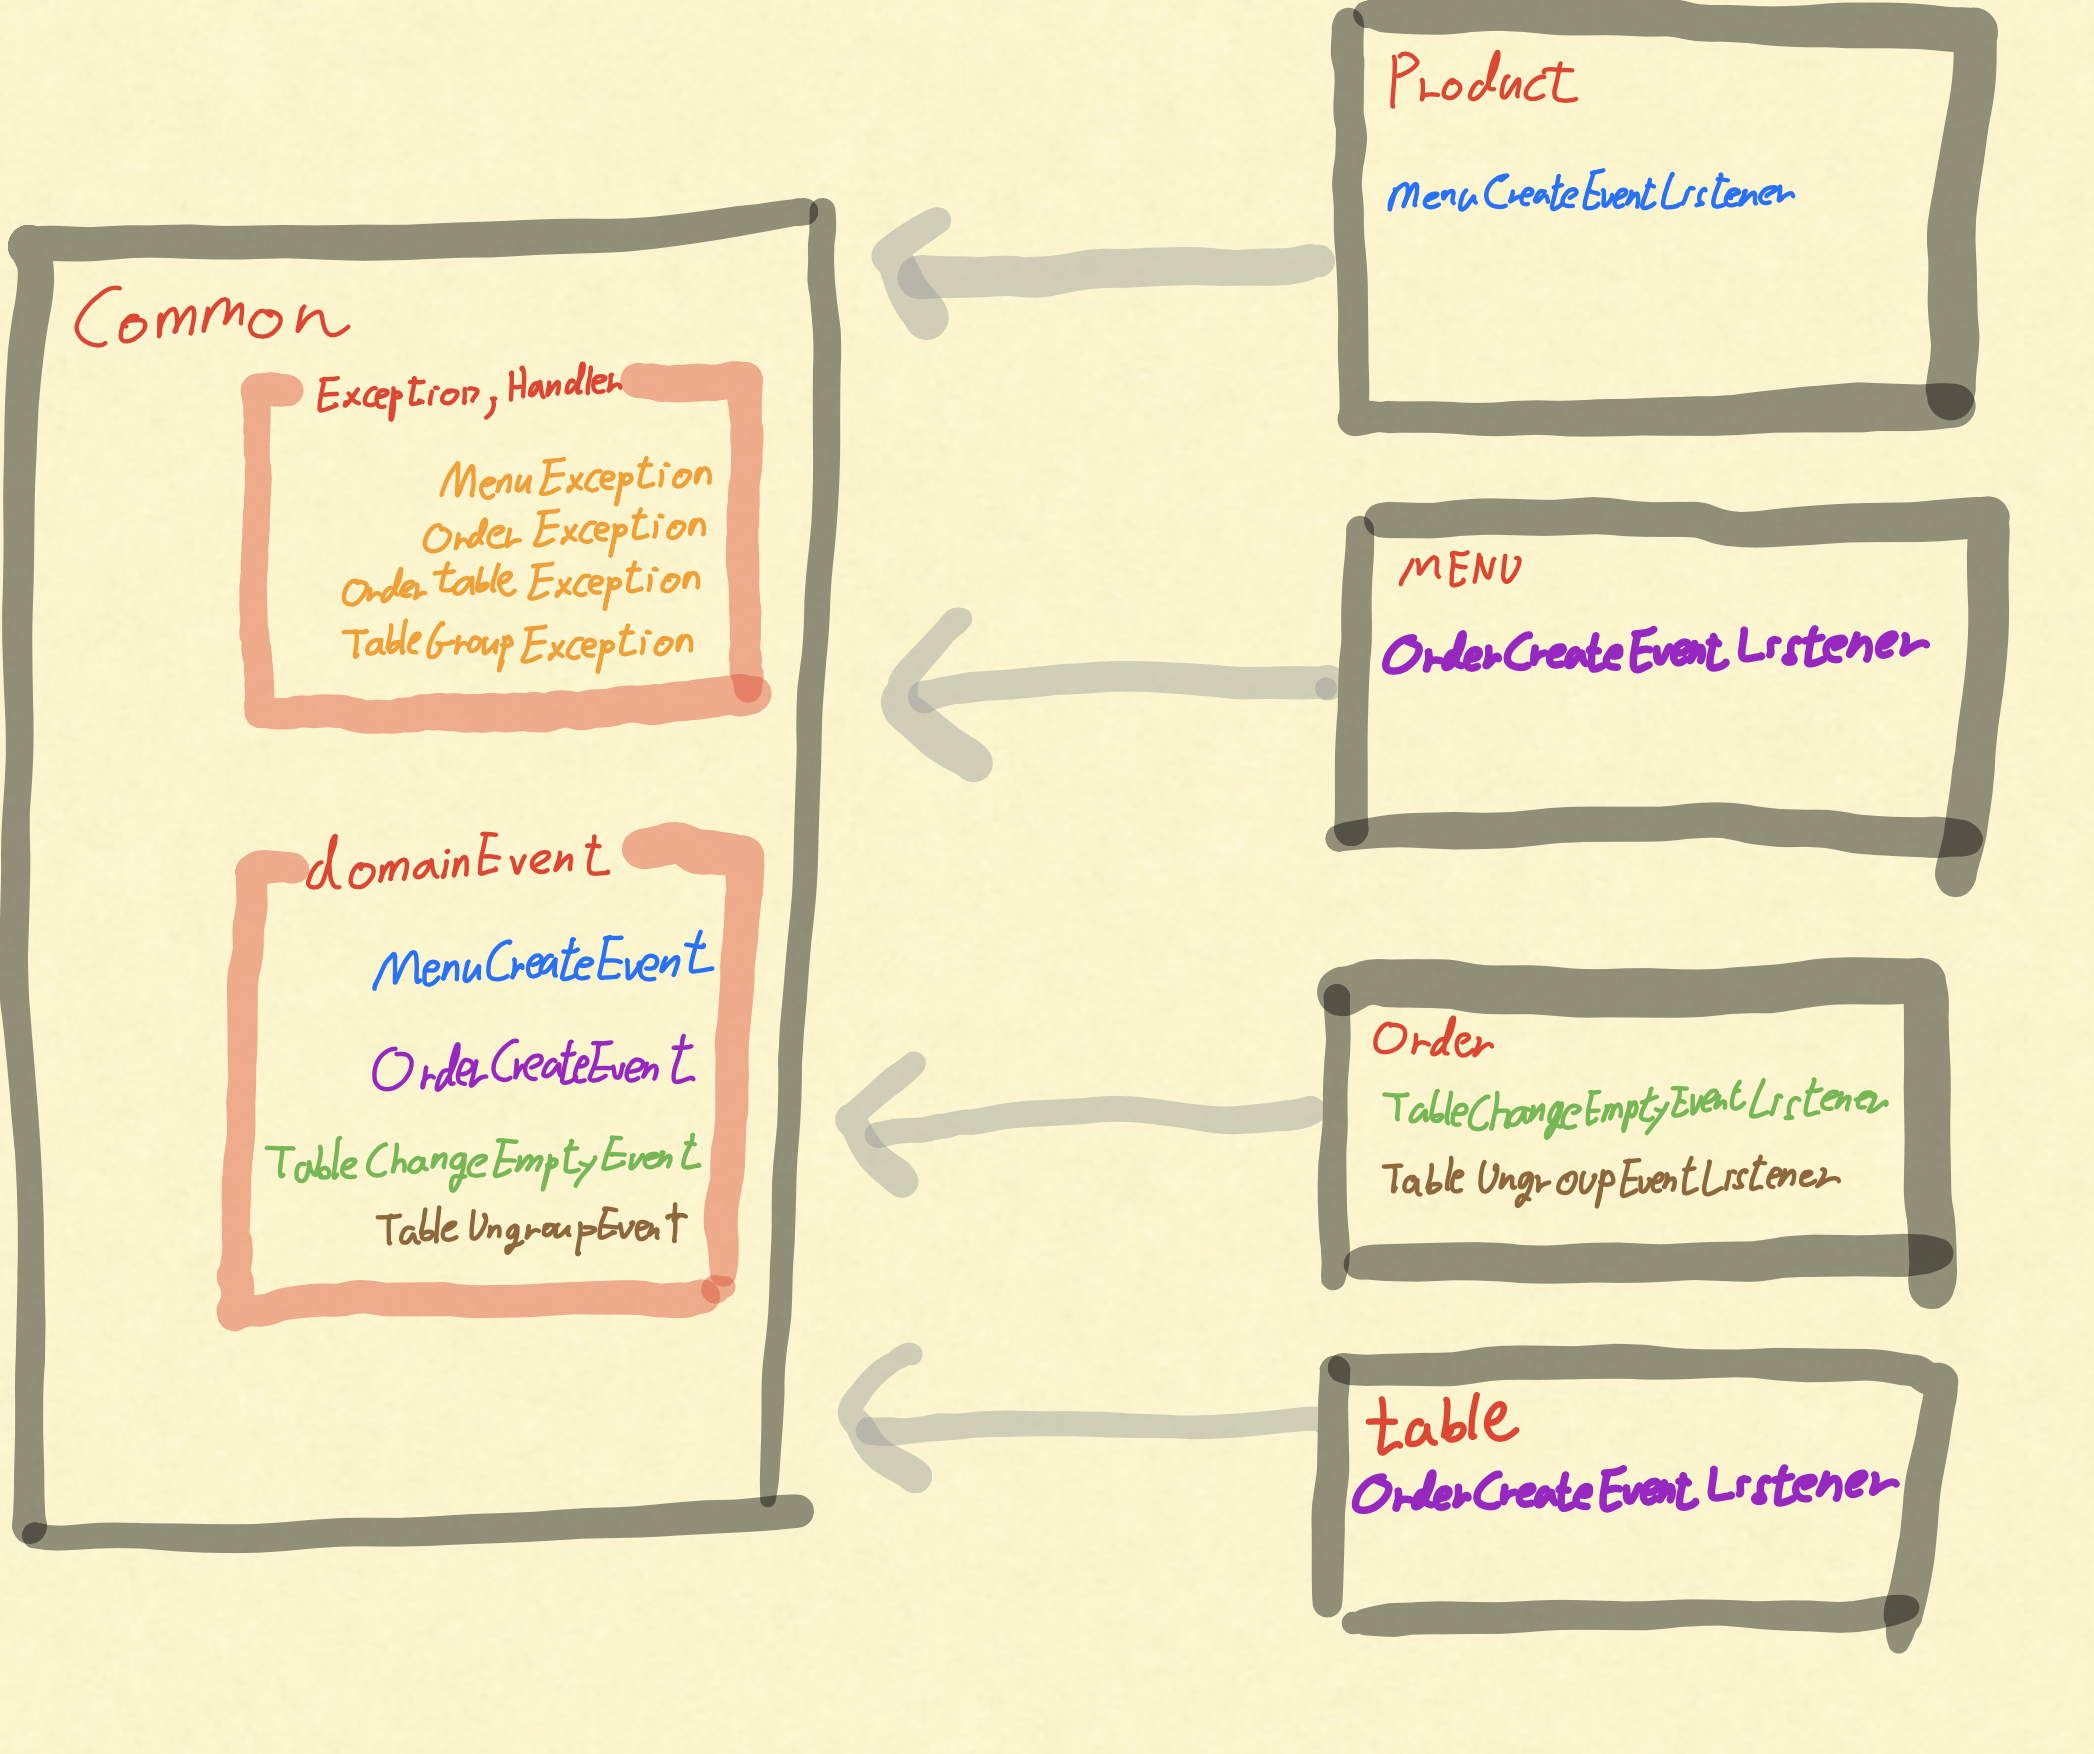 Common
Exception, Handler
MenuException
Order Exception
Order table Exception
TableGroupException
domainEvent
MenuCreateEvent
OrderCreateEvent
TableChangeEmptyEvent
Table UngroupEvent
Product
MenuCreateEventListener
MENU
OrderCreateEventListener
Order
TableChangeEmptyEventListener
Table UngroupEventListener
table
OrderCreateEventListener